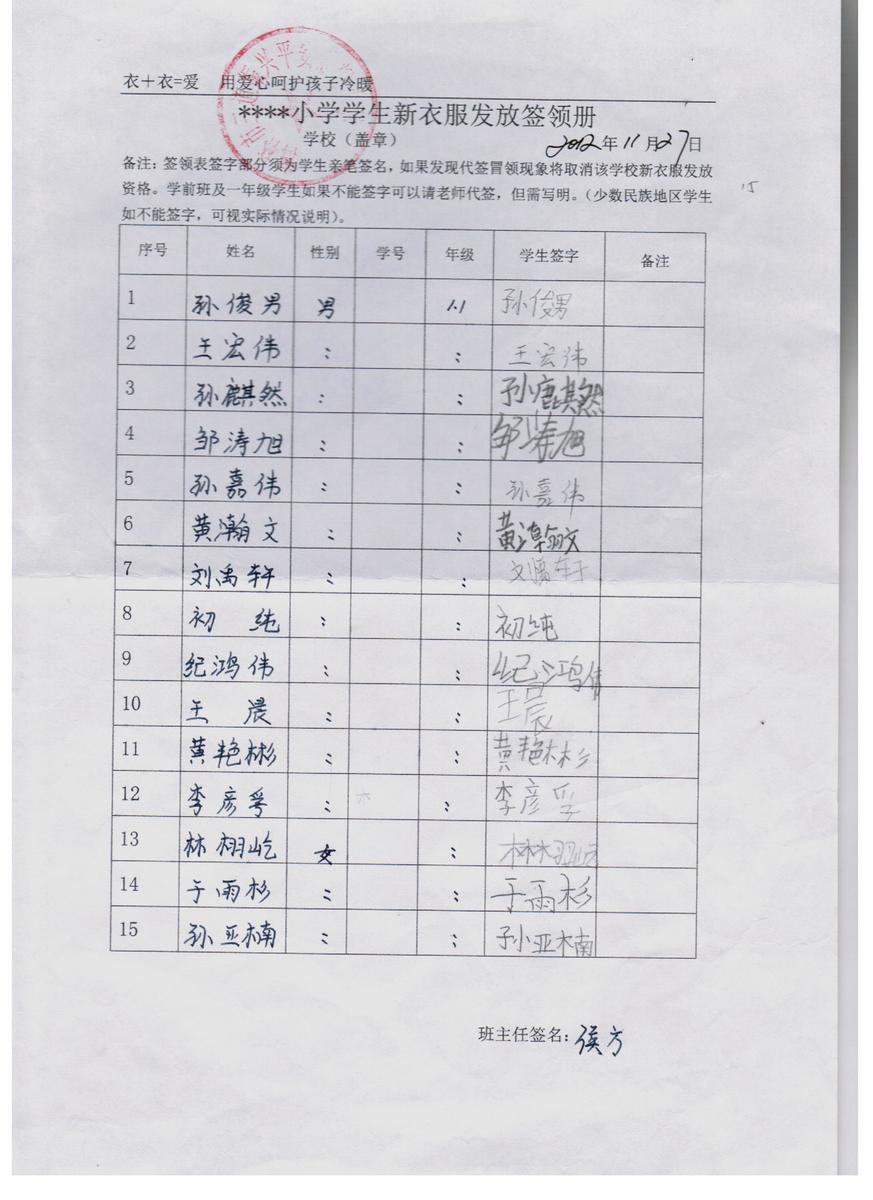 衣+衣=爱 用爱心呵护孩子冷暖
****小学学生新衣服发放签领册
学校（盖章） 2012年11月27日
备注：签领表签字部分须为学生亲笔签名，如果发现代签冒领现象将取消该学校新衣服发放
资格。学前班及一年级学生如果不能签字可以请老师代签，但需写明。（少数民族地区学生
如不能签字，可视实际情况说明）。
15
序号 姓名 性别 学号 年级 学生签字 备注
1 孙俊男 男 1.1 孙俊男
2 王宏伟 : : 王宏伟
3 孙麒然 : : 孙麒然
4 邹涛旭 : : 邹涛旭
5 孙嘉伟 : : 孙嘉伟
6 黄瀚文 : : 黄瀚文
7 刘禹轩 : : 刘禹轩
8 初纯 : : 初纯
9 纪鸿伟 : : 纪鸿伟
10 王晨 : : 王晨
11 黄艳彬 : : 黄艳彬
12 李彦孚 : : 李彦孚
13 林栩屹 女 : 林栩屹
14 于雨杉 : : 于雨杉
15 孙亚楠 : : 孙亚楠
班主任签名：侯方